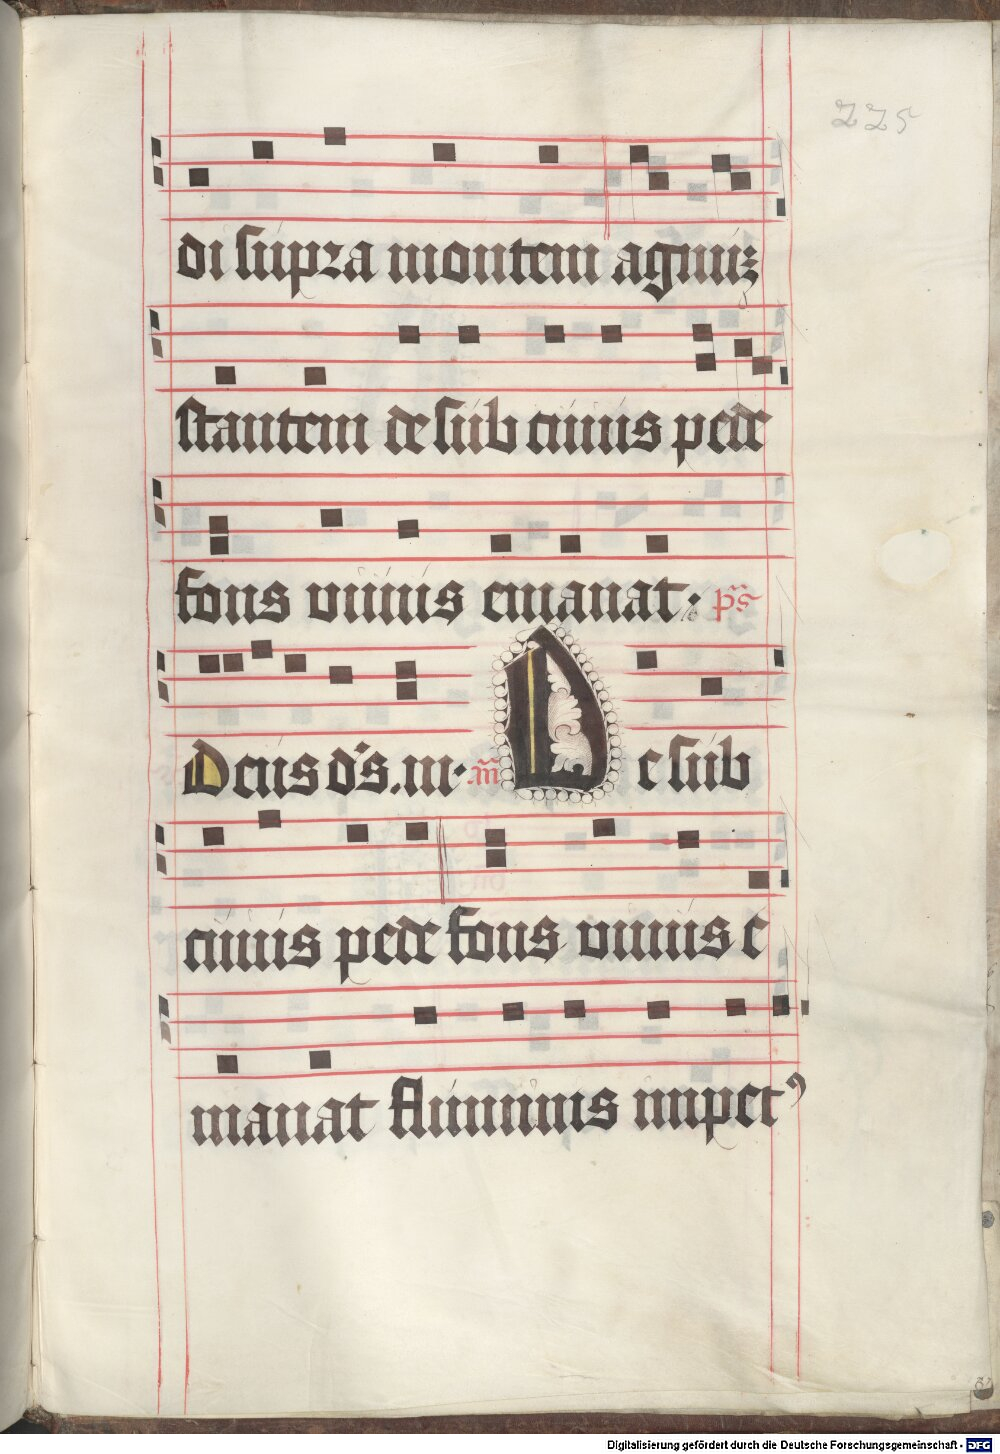 225
di supra montem agnuꝫ
stantem de sub cuius pede
fons viuus emanat. p̄s
Deus ds. m. añ De sub
cuius pede fons viuus e
manat fluminis impetꝰ
Digitalisierung gefördert durch die Deutsche Forschungsgemeinschaft - DFG